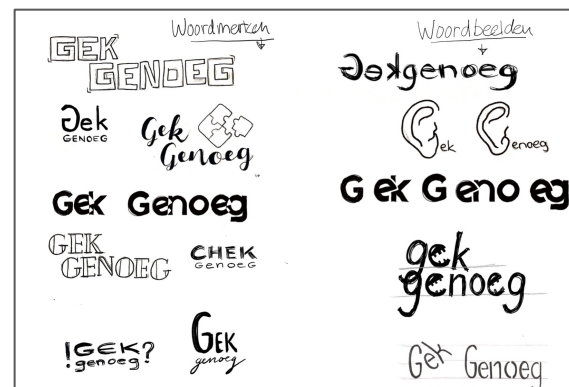 Woordmerken
GEK
GENOEG
Gek
GENOEG
Gek
Genoeg
Gek Genoeg
GEK
GENOEG
CHEK
GENOEG
!GEK?
genoeg
GEK
genoeg
Woordbeelden
Gekgenoeg
ek enoeg
G ek G eno eg
gek
genoeg
Gek Genoeg